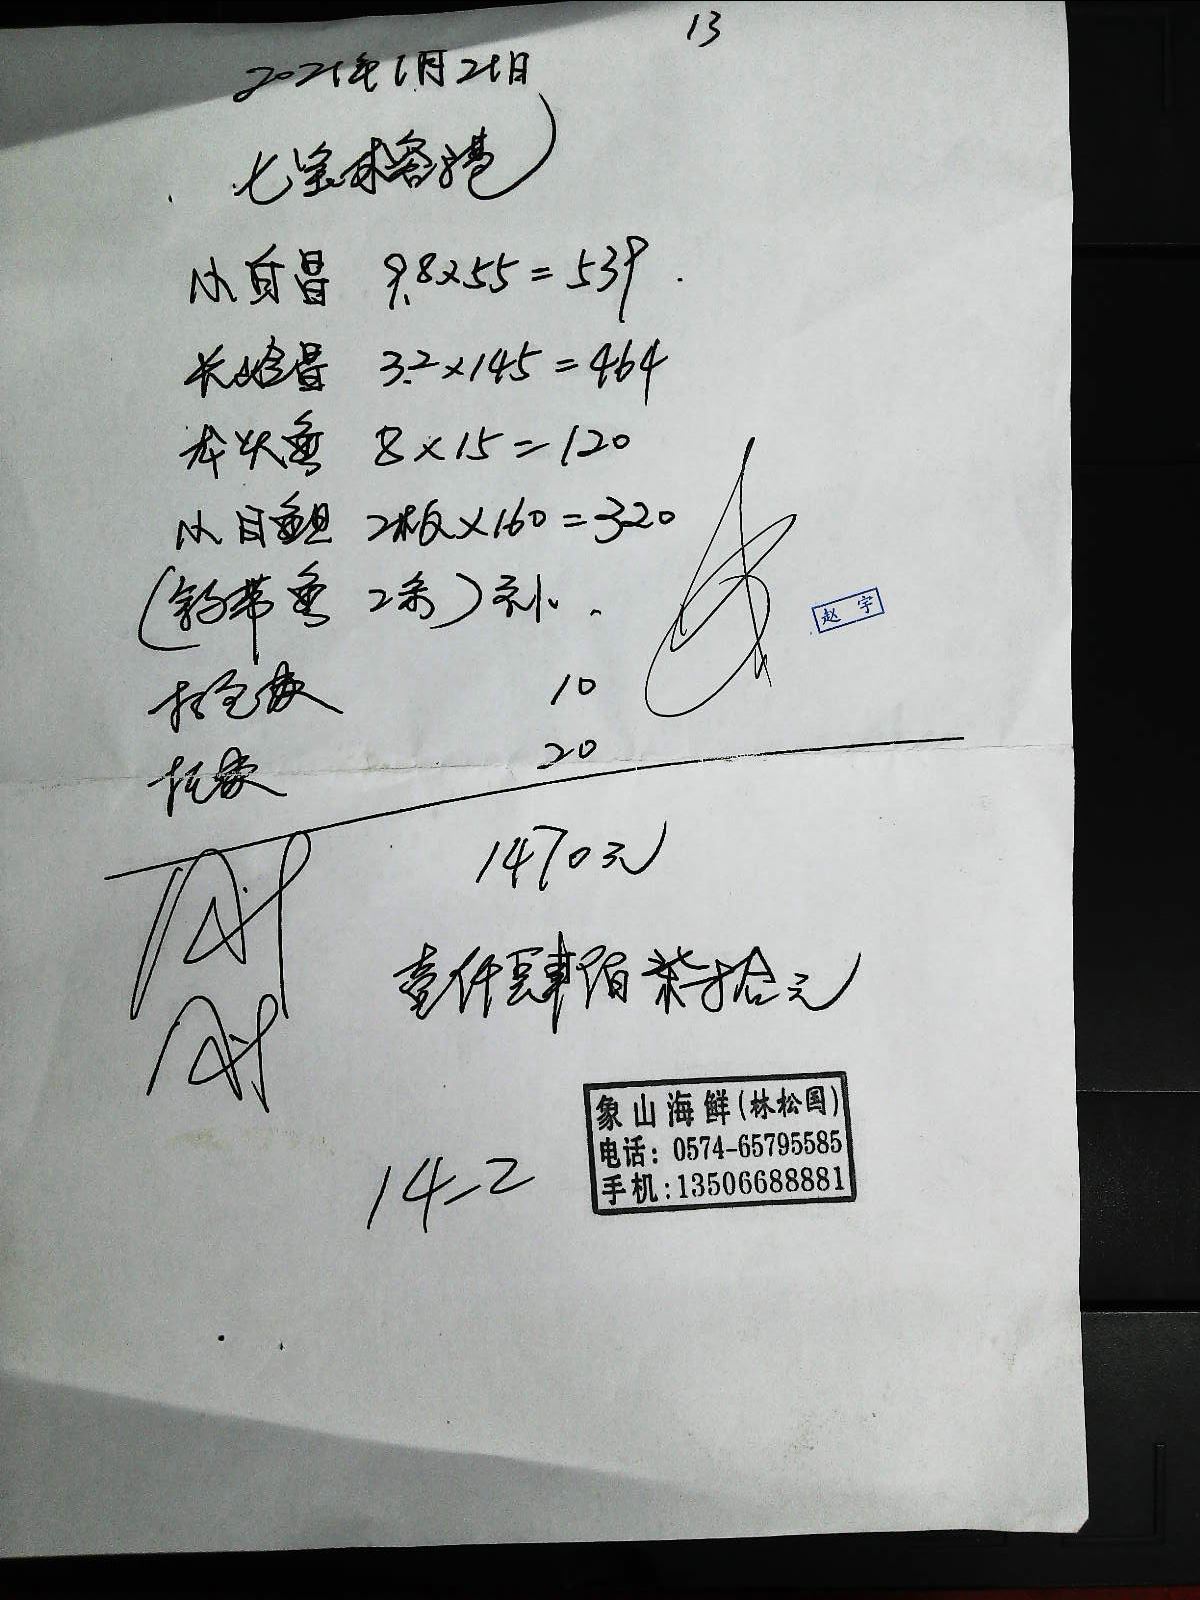 13
2021年1月21日
七宝林客港
小白昌 9.8×55=539
长昌 3.2×145=464
龙头鱼 8×15=120
小目鱼 2板×160=320
(钓带鱼 2条)
10
20
赵宇
1470元
壹仟肆佰柒拾元
14-2
象山海鲜(林松国)
电话: 0574-65795585
手机:13506688881